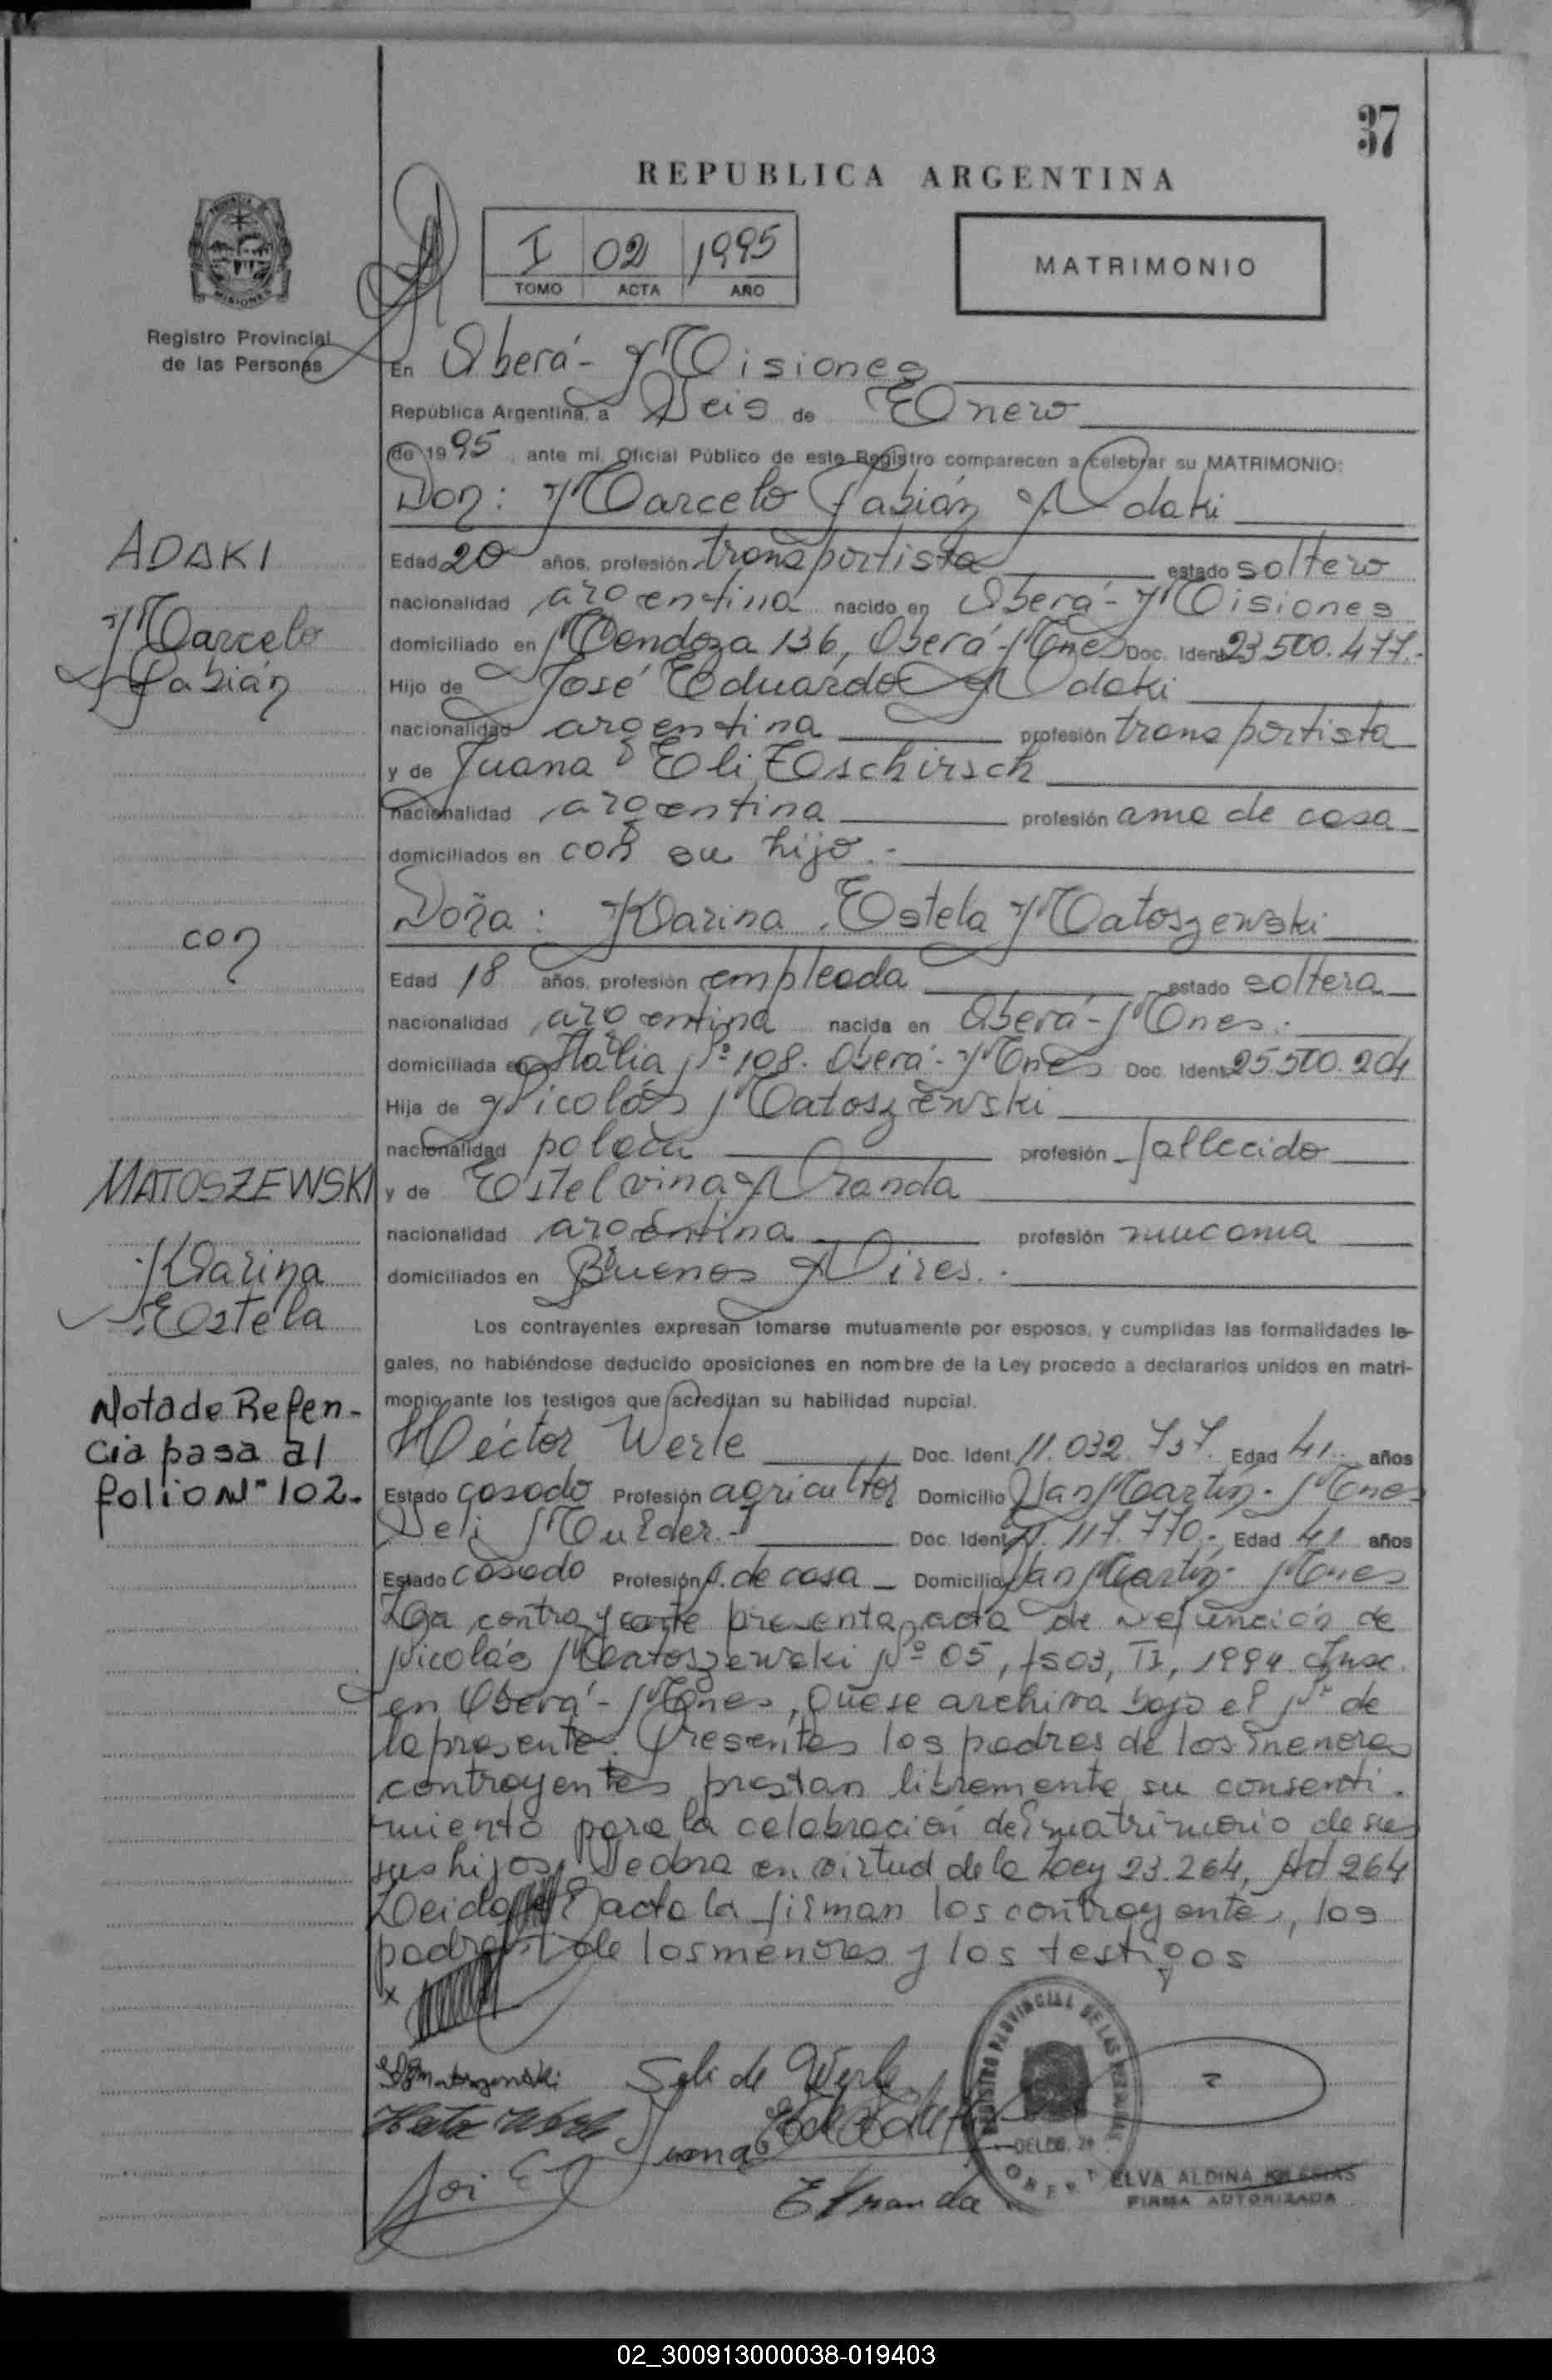 37
REPUBLICA ARGENTINA
I 02 1995
TOMO ACTA AÑO
MATRIMONIO
MISIONES
Registro Provincial
de las Personas
En Oberá - Misiones
República Argentina, a Seis de Enero
de 1995, ante mi, Oficial Público de este Registro comparecen a celebrar su MATRIMONIO:
Don: Marcelo Fabián Adaki
ADAKI
Marcelo
Fabián
Edad 20 años, profesión transportista estado soltero
nacionalidad argentina nacido en Oberá - Misiones
domiciliado en Mendoza 136, Oberá - Mnes Doc. Ident. 23.500.477.-
Hijo de José Eduardo Adaki
nacionalidad argentina profesión transportista
y de Juana Eli Eschirsch
nacionalidad argentina profesión ama de casa
domiciliados en con su hijo.-
con
Doña: Karina Estela Matoszewski
Edad 18 años, profesión empleada estado soltera
nacionalidad argentina nacida en Oberá - Mnes.
domiciliada en Italia Nº 108. Oberá - Mnes Doc. Ident. 25.500.204
Hija de Nicolás Matoszewski
nacionalidad polaca profesión fallecido
MATOSZEWSKI
Karina
Estela
y de Estelvina Aranda
nacionalidad argentina profesión mucama
domiciliados en Buenos Aires.
Los contrayentes expresan tomarse mutuamente por esposos, y cumplidas las formalidades le-
gales, no habiéndose deducido oposiciones en nombre de la Ley procedo a declararlos unidos en matri-
monio ante los testigos que acreditan su habilidad nupcial.
Nota de Refen-
cia pasa al
folio Nº 102.
Héctor Werle Doc. Ident. 11.032.737. Edad 41 años
Estado casado Profesión agricultor Domicilio San Martín - Mnes
Seli Mulder.- Doc. Ident. 11.117.770.- Edad 41 años
Estado casado Profesión A. de casa Domicilio San Martín - Mnes
La contrayente presenta acta de defunción de
Nicolás Matoszewski Nº 05, fs 03, TI, 1994 Insc.
en Oberá - Mnes, que se archiva bajo el Nº de
la presente. Presentes los padres de los menores
contrayentes prestan libremente su consenti-
miento para la celebración del matrimonio de sus
sus hijos, Se obra en virtud de la Ley 23.264, Art 264
Leida el acta la firman los contrayentes, los
padres de los menores y los testigos
x
Seli de Werle
Juana
E Aranda
REGISTRO PROVINCIAL DE LAS PERSONAS
DELEG.
ELVA ALDINA IGLESIAS
FIRMA AUTORIZADA
02_300913000038-019403